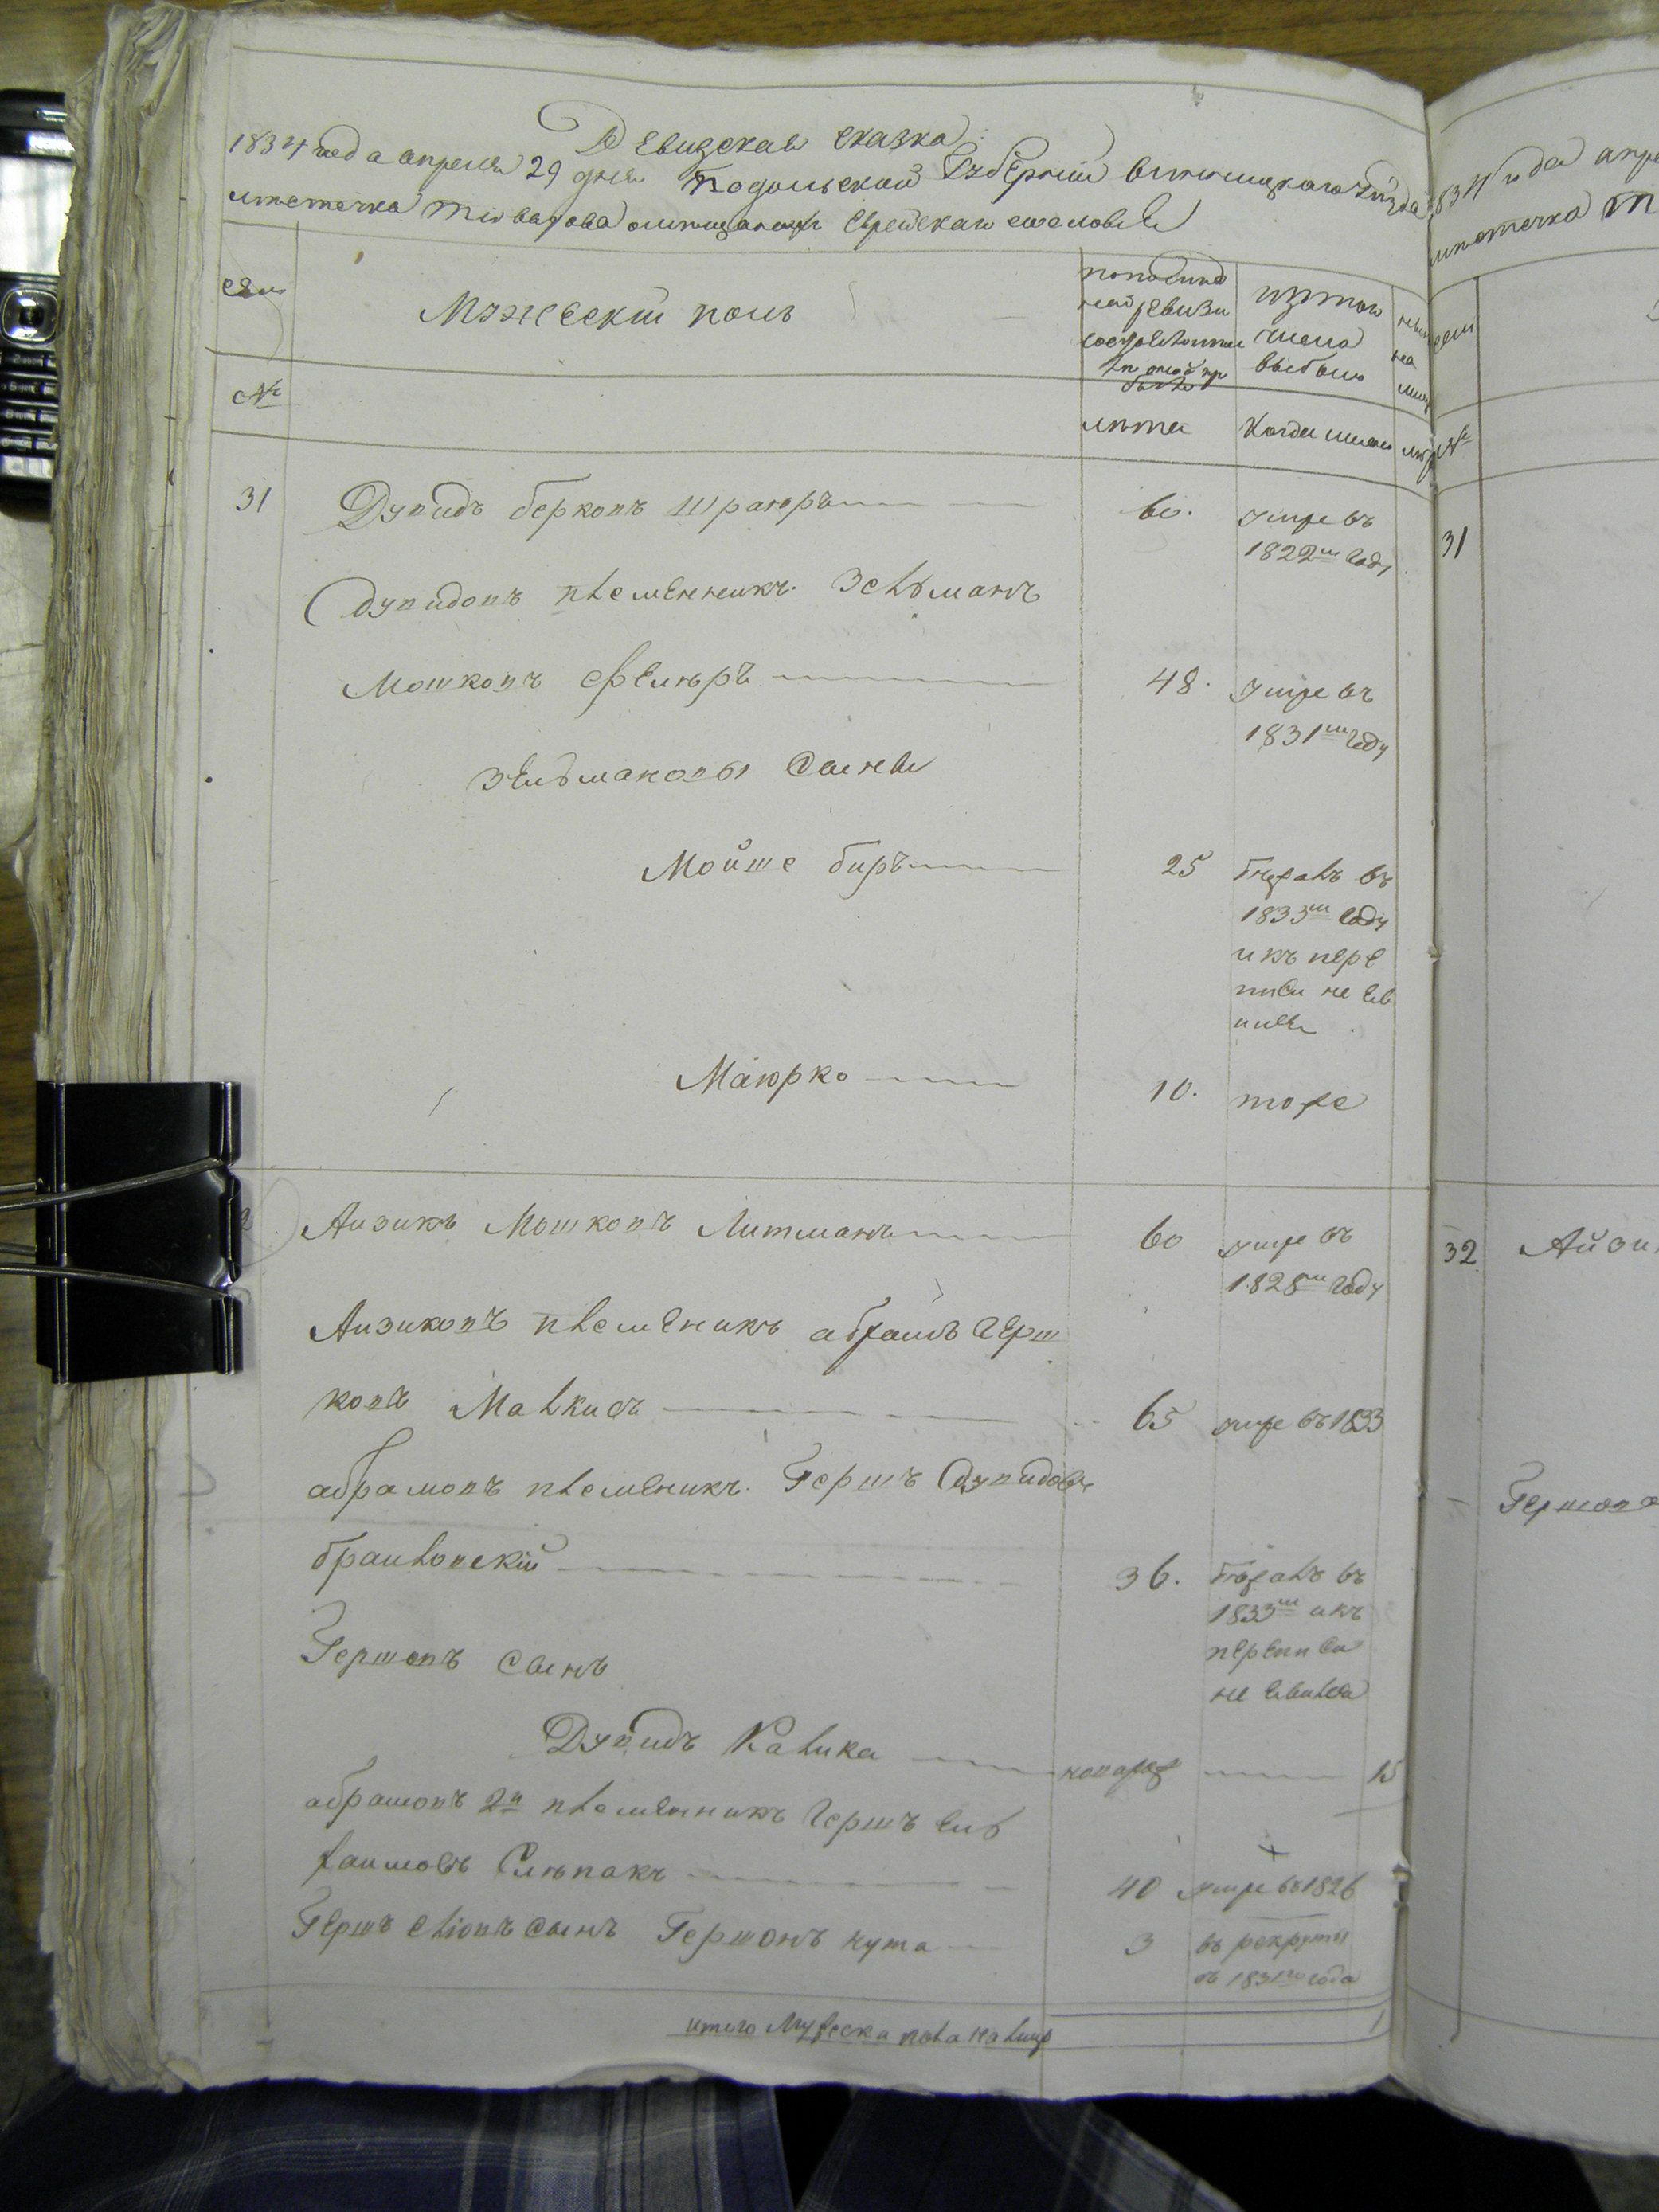 Ревизская сказка
1834 года апреля 29 дня Подольской Губернии винницкого уезда
местечка Тыврова о мещанах Еврейскаго
Семи
Мужескiй полъ
по последней ревизии состояло и после оной прибыло
изтого числа выбыло
ныне на лицо
№
лета
Когда имянно
лет
31 Дувидъ берковъ Шраюръ 60. умре въ
1822м году
Дувидовъ племенникъ Зельманъ
Мошковъ 48. умре въ
1831м году
Зельмановы Сыны
Мойше биръ 25 бежалъ въ
1833м году
и къ пере
писи не яв
ился
Маюрко 10. тоже
Аизикъ Мошковъ Литманъ 60 умре въ
1828м году
Аизиковъ племеникъ абрамъ Герш
ковъ Малкисъ 65 умре въ 1833
абрамовъ племеникъ Гершъ Дувидовъ
браиловскiй 36. бежалъ въ
1833м и къ
переписи
не явился
Гершовъ Сынъ
Дувидъ Калика новорож 15
абрамовъ 2й племенникъ Гершъ
Слепакъ 40 умре въ 1826
Гершъ сынъ Гершонъ нута 3 въ рекруты
въ 1831го года
итого Мужеска пола на лицо 1
1834 года апре
местечка Т
семи
№
31
32 Айзи
Гершова